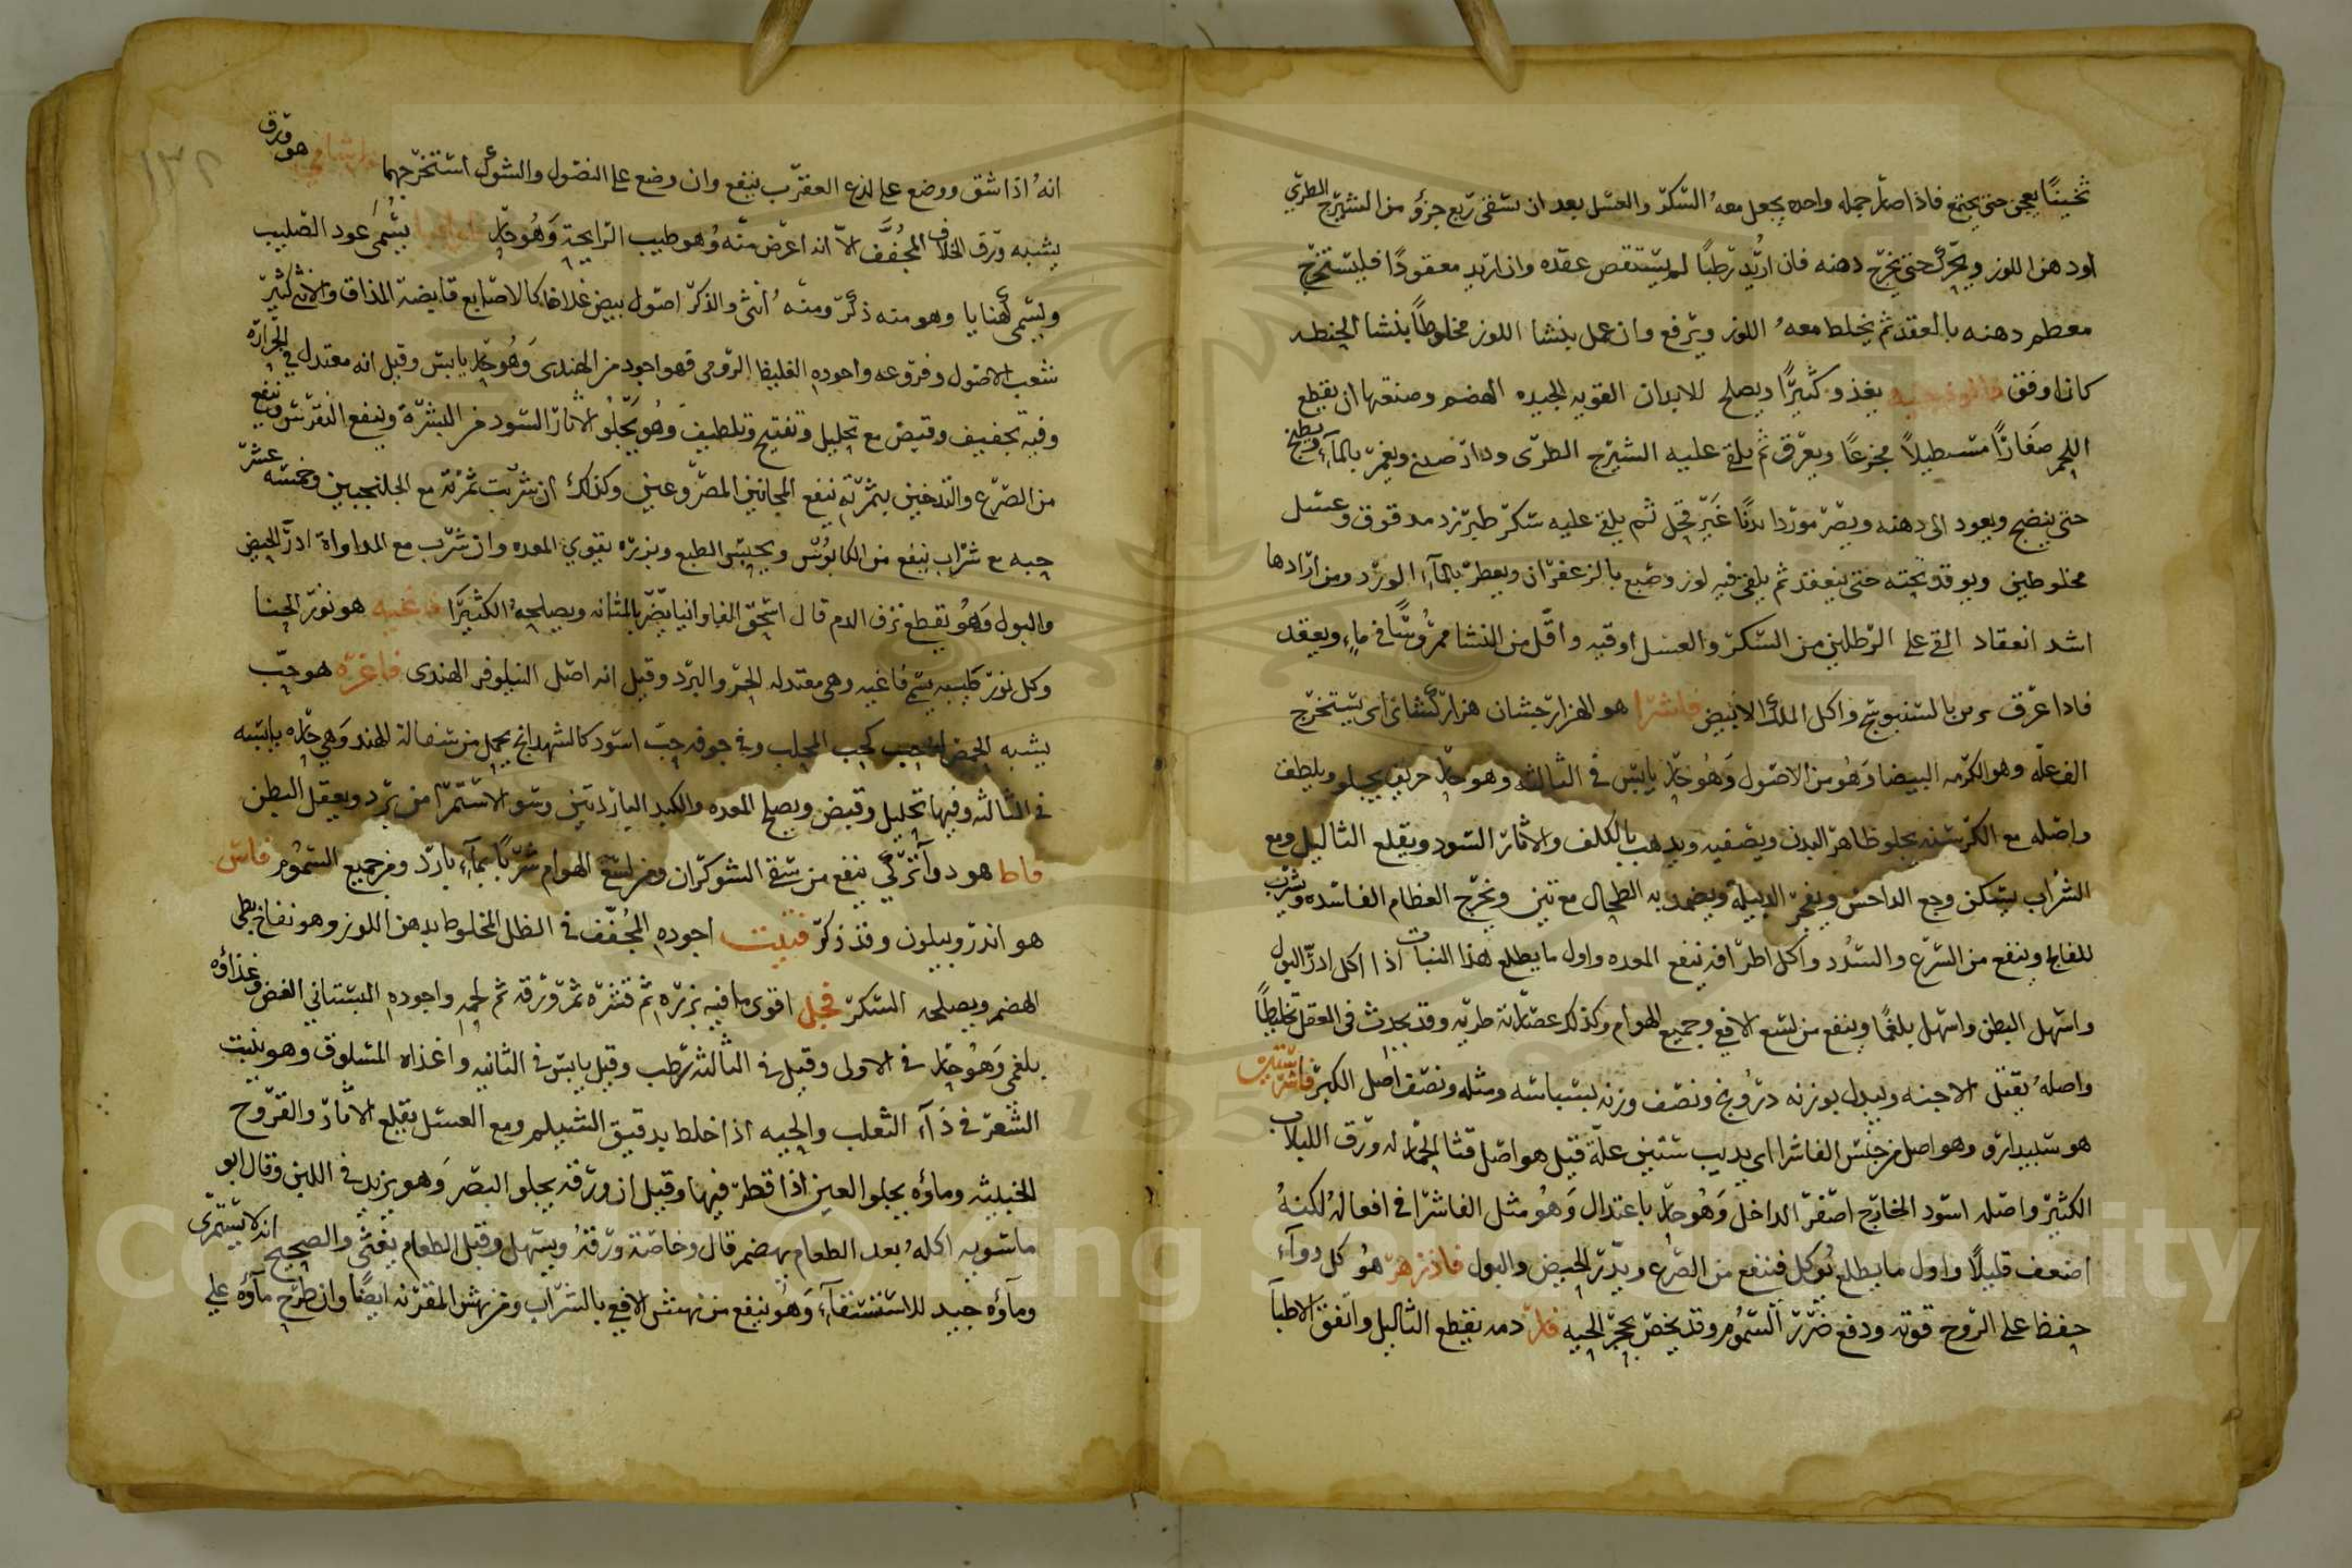 ثخينًا يعجن حتى يجتمع فاذا صار جمله واحده يجعل معهُ السكر والعسل بعد ان سقى ربع جزؤ من الشيرج الطري
اودهن اللوز ويحرك حتى يخرج دهنه فان اريد رطبًا لم يستقص عقده وان اريد معقودًا فليستخرج
معظم دهنه بالعقد ثم يخلط معهُ اللوز ويرفع وان عمل بنشا اللوز مخلوطًا بنشا الحنطه
كان اوفق يغذو كثيرًا ويصلح للابدان القويه الجيده الهضم وصنعها ان يقطع
اللحم صغارًا مستطيلاً مجزعًا ويعرق ثم يلقى عليه الشيرج الطرى ودارصينى ويغمر بالماء ويطبخ
حتى ينضج ويعود الى دهنه ويصر موردا لدنًا غير قحل ثم يلقى عليه سكر طبرزد مدقوق وعسل
مخلوطين ويوقد تحته حتى ينعقد ثم يلقى فيه لوز وصبغ بالزعفران ويعطر بالماء الورد ومن ارادها
اشد انعقاد القى على الرطلين من السكر والعسل اوقيه واقل من النشا ممروسًا في ماء ويعقد
فاشرا هو الهزارجشان هزاركشاى اى يستخرج
الف عله وهو الكرمه البيضا وَهُو من الاصول وَهُو حار يابس في الثالثه وهو حار حريف يجلو ويلطف
واصله مع الكرسنه يجلو ظاهر البدن ويصفيه ويذهب بالكلف والاثار السود ويقلع الثاليل ومع
الشراب يسكن وجع الداحس ويفجر الدبيلة ويضمد به الطحال مع تين ويخرج العظام الفاسده ويشرب
للفالج وينفع من الصرع والسدد واكل اطرافه ينفع المعده واول ما يطلع هذا النبات اذا اكل ادر البول
واسهل البطن واسهل بلغمًا وينفع من لسع الافعى وجميع الهوام وكذلك عصارته طريه وقد يحدث في العقل تخليطًا
واصلهُ يقتل الاجنه ويبدل بوزنه درونج ونصف وزنه بسباسه ومثله ونصف اصل الكبر فاشرستين
هو سبيدارو وهو اصل من جنس الفاشرا اى يذيب ستين علة قيل هو اصل قثا الحمار له ورق اللبلاب
الكثير واصله اسود الخارج اصفر الداخل وَهُو حار باعتدال وَهُو مثل الفاشرا في افعاله لكنهُ
اضعف قليلاً واول ما يطلع يُوكل فينفع من الصرع ويدر الحيض والبول فادزهر هُو كل دوآء
حفظ على الروح قوته ودفع ضرر السموم وقد يخص بحجر الحيه فار دمه يقطع الثاليل واتفق الاطبا
انهُ اذا شق ووضع على لذع العقرب ينفع وان وضع على النصول والشوك استخرجهما هو ورق
يشبه ورق الخلاف المجُفَّف الاّ انه اعرض منه وُهو طيب الرايحة وَهُو حار يسُمَى عود الصليب
ويسمى كهنايا وهو منه ذكر ومنهُ أنثى والذكر اصول بيض غلاظ كالاصابع قابضة المذاق والانثى كثير
شعب الاصول وفروعه واجوده الغليظ الرومى فهو اجود من الهندى وَهُو حار يابس وقيل انه معتدل في الحراره
وفيه تجفيف وقبض مع تحليل وتفتيح وتلطيف وَهُو يَجْلُو الاثار السود من البشرة وينفع النقرس وينفع
من الصرع والتدخين بثمرته ينفع المجانين المصروعين وكذلك ان شربت ثمرته مع الجلنجبين وخمسه عشر
حبه مع شراب ينفع من الكابوُس ويحبس الطبع وبزره يقوي المعده وان شرب مع المداواة ادر الحيض
والبول وَهُو يقطع نزف الدم قال اسحق الفاوانيا يضر بالمثانه ويصلحهُ الكثيرا فاغيه هو نور الحنا
وكل نور طيب يسمى فاغيه وهى معتدله الحر والبرد وقيل انه اصل النيلوفر الهندى فاغره هو حب
يشبه الحمص كحب المحلب وفي جوفه حب اسود كالشهدانج يحمل من سفالة الهند وَهي حاره يابسه
في الثالثه وفيها تحليل وقبض ويصلح المعده والكبد الباردتين وسو الاستمرا من برد ويعقل البطن
فاط هو دوآ تركي ينفع من سقى الشوكران ومن لسع الهوام شربًا بمآء بارد ومن جميع السموم فاس
هو اندروبيلون وقد ذكر فتيت اجوده المجُفّف في الظل المخلوط بدهن اللوز وهو نفاخ بطى
الهضم ويصلحه السكر فجل اقوى ما فيه بزره ثم قشره ثم ورقه ثم لحمه واجوده البستاني الغض وغذاؤه
بلغمى وَهُو حار في الاولى وقيل في الثالثه رطب وقيل يابس في الثانيه واغذاه المسلوق وهو ينبت
الشعر في دَآء الثعلب والحيه اذا خلط بدقيق الشيلم ومع العسل يقلع الاثار والقروح
الخبيثه وماؤه يجلو العين اذا قطر فيها وقيل ان ورقه يجلو البصر وَهو يزيد في اللبن وقال ابو
ماسويه اكلهُ بعد الطعام يهضم قال وخاصة ورقهُ ويسهل وقبل الطعام يغثى والصحيح انه لا يستمرى
ومآؤه جيد للاستسقآء وَهُو ينفع من نهش الافعى بالشراب ومن نهش المقرنه ايضًا وان طرح مآؤه على